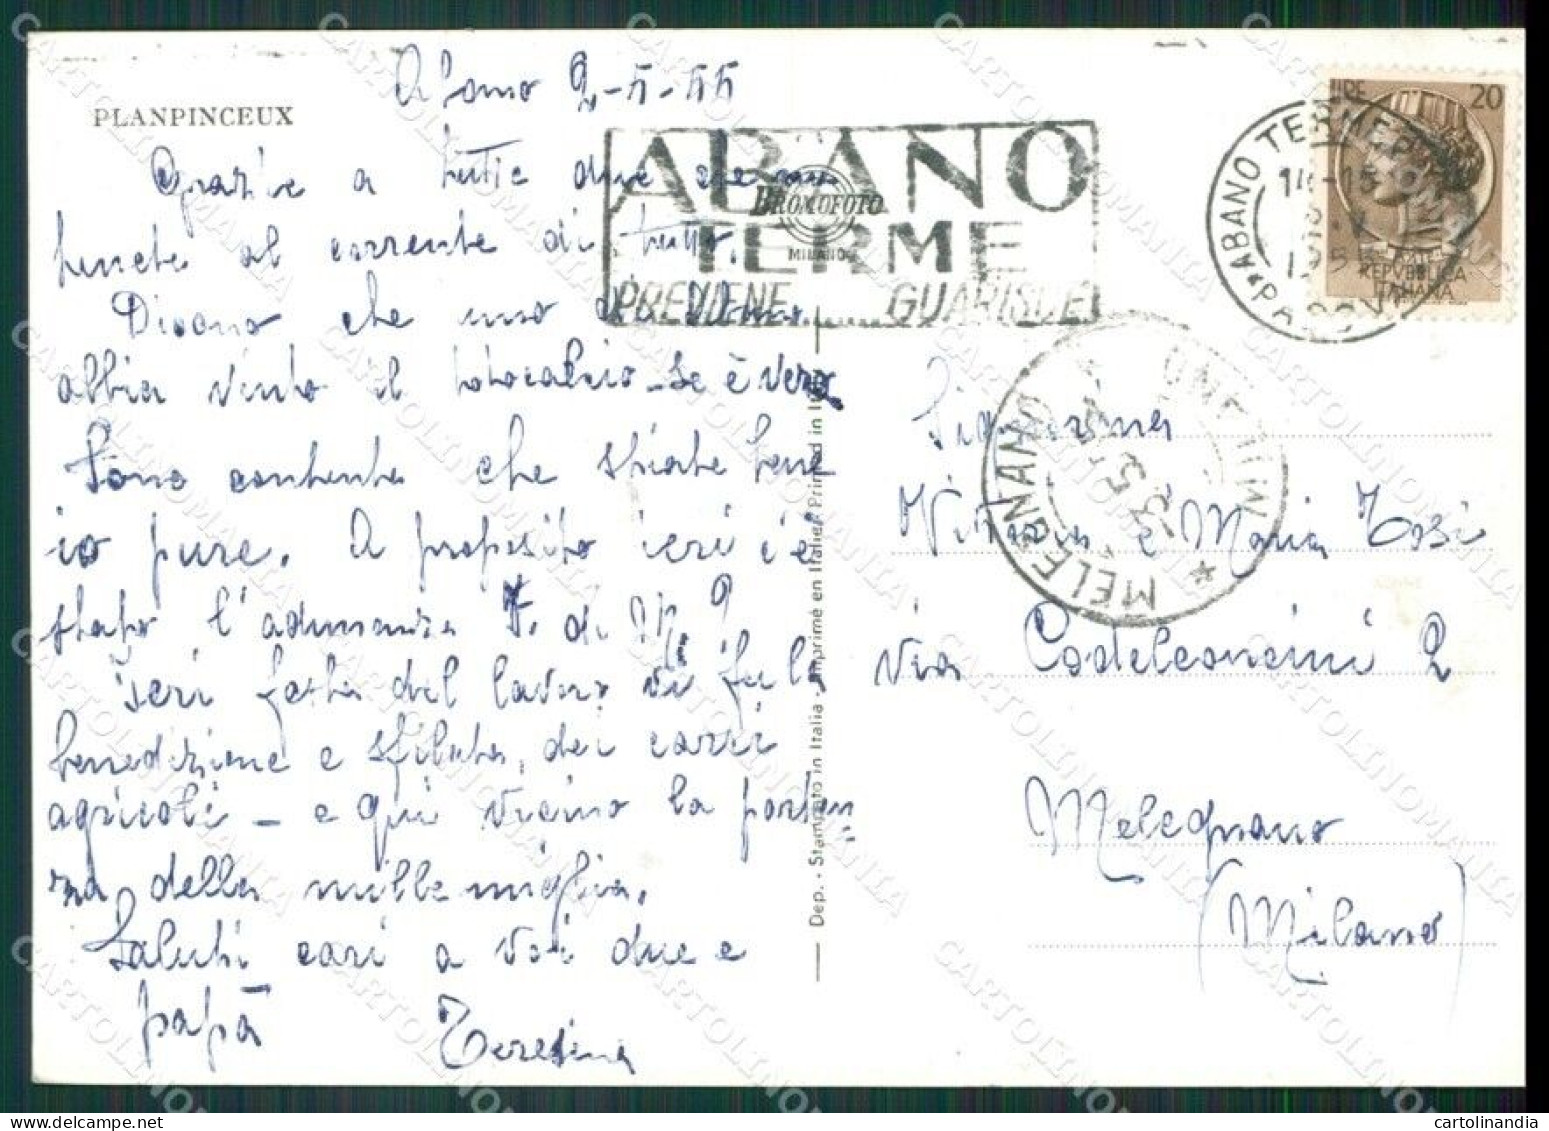 PLANPINCEUX
Abano 2-5-55
Grazie a tutte due che mi
tenete al corrente di tutto.
Dicono che uno di
abbia vinto il totocalcio - se è vero
Sono contenta che stiate bene
io pure. A proposito ieri c'è
stato l'adunanza F. di M ?
Ieri festa del lavoro vi fu la
benedizione e sfilata dei carri
agricoli - e qui vicino la parten
za della mille miglia.
Saluti cari a voi due e
papà Teresina
ABANO
TERME
PREVIENE GUARISCE
BROMOFOTO
MILANO
Dep. - Stampato in Italia - Imprimé en Italie - Printed in
20
LIRE
REPVBBLICA
ITALIANA
ABANO TERME
14-15
PADOVA
MELEGNANO
Signorina
Vittoria e Maria Tosi
via Codeleoncini 2
Melegnano
(Milano)
CARTOLINOMANIA
cartolinandia